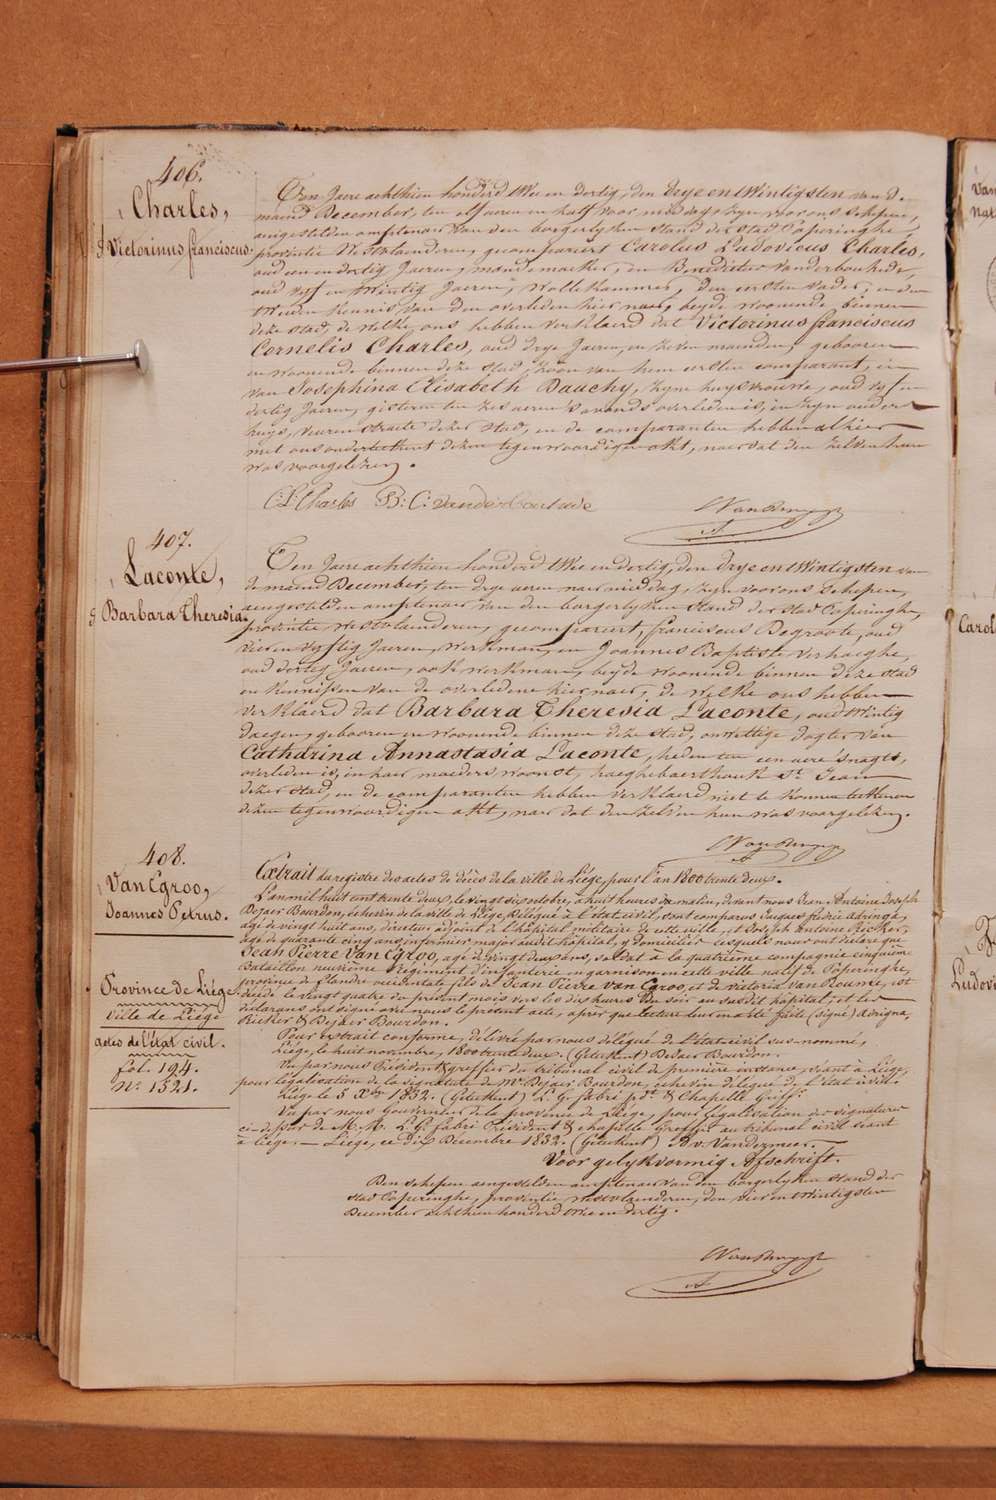 406.
Charles,
Victorinus franciscus.
Ten Jaere achthien honderd twee en dertig, den drye en twintigsten van de
maend December, ten elf ueren en half voor middag zyn voor ons Schepen,
aengestelden amptenaer van den borgerlyken stand der stad Poperinghe,
provintie Westvlaenderen, gecompareert Carolus Ludovicus Charles,
oud een en dertig Jaeren, mandemaeker, en Benedictus Vanderbouhede,
oud vyf en twintig Jaeren, wollekammer, den eersten vader, en den
tweeden kennis van den overleden hier naer, beyde woonende binnen
deze stad, de welke ons hebben verklaerd dat Victorinus franciscus
Cornelis Charles, oud drye Jaeren, en zeven maenden, gebooren
en woonende binnen deze stad, zoon van hem eersten comparant, en
van Josephina Elisabeth Bauchy, zyne huysvrouwe, oud vyf en
dertig Jaeren, gisteren ten zes ueren 's avonds overleden is, in zyn ouders
huys, veurenstraete dezer stad, en de comparanten hebben alhier
met ons onderteekent dezen tegenwoordigen akt, naer dat den zelven hun
was voorgelezen.
C: L: Charles B: C: Vanderbouhede
407.
Laconte,
Barbara Theresia.
Ten Jaere achthien honderd twee en dertig, den drye en twintigsten van
de maend December, ten drye ueren naer middag, zyn voor ons Schepen,
aengestelden amptenaer van den borgerlyken stand der stad Poperinghe,
provintie Westvlaenderen, gecompareert, franciscus Degroote, oud
vier en vyftig Jaeren, werkman, en Joannes Baptiste Verhaeghe,
oud dertig Jaeren, ook werkman, beyde woonende binnen deze stad
en kennissen van de overledene hier naer, de welke ons hebben
verklaerd dat Barbara Theresia Laconte, oud twintig
daegen, gebooren en woonende binnen deze stad, onwettige dogter van
Catharina Annastasia Laconte, heden ten een uere 's nagts,
overleden is, in haer moeders woonst, haeghebaerthouk St. Jean
dezer stad, en de comparanten hebben verklaerd niet te konnen teekenen
dezen tegenwoordigen akt, naer dat den zelven hun was voorgelezen.
408.
Van Egroo,
Joannes Petrus.
Province de Liége
Ville de Liége
actes de l'état civil.
fol. 194.
No. 1521.
Extrait du registre des actes de décès de la ville de Liége, pour l'an 1800 trente deux.
L'an mil huit cent trente deux, le vingt six octobre, a huit heures du matin, devant nous Jean Antoine Joseph
Dejaer Bourdon, échevin de la ville de Liége, délégué à l'état civil, sont comparus Jacques fédric
agé de vingt huit ans, directeur adjoint de l'hôpital militaire de cette ville, et Joseph Antoine Ricker,
agé de quarante cinq ans, infirmier major audit hôpital, y domicilier lesquels nous ont déclaré que
Jean Pierre Van Egroo, agé de vingt deux ans, soldat à la quatrième compagnie cinquième
Bataillon neuvième Régiment d'infanterie en garnison en cette ville natif de Poperinghe,
province de flandre occidentale fils de Jean Pierre van Egroo, et de victoria van Roumé, est
décédé le vingt quatre du présent mois vers les dix heures du soir au susdit hôpital; et les
déclarans ont signé avec nous le présent acte, après que lecture leur en a été faite (signé)
Ricker & Dejaer Bourdon.
Pour extrait conforme, délivré par nous délégué de l'état civil sus-nommé,
Liége, le huit novembre, 1800 trente deux. (Geteekent) Dejaer Bourdon.
Vu par nous Président & greffier du tribunal civil de première instance, séant à Liége,
pour légalisation de la signature de Mr. Dejaer Bourdon, echevin délégué de l'état civil.
Liége le 5 Xbre 1832. (Geteekent) L. G. fabri pdt. & Chapelle Greff.
Vu par nous Gouverneur de la province de Liége, pour légalisation des signatures
ci-dessus de M. M. L. G. fabri Président & chapelle Greffier au tribunal civil séant
à Liége. Liége, ce dix Decembre 1832. (Geteekent) B. v. Vandermeer.
Voor gelykvormig Afschrift.
Den schepen aengestelden amptenaer van den borgerlyken stand der
stad Poperinghe, provintie Westvlaenderen, den vier en twintigsten
December achthien honderd twee en dertig.